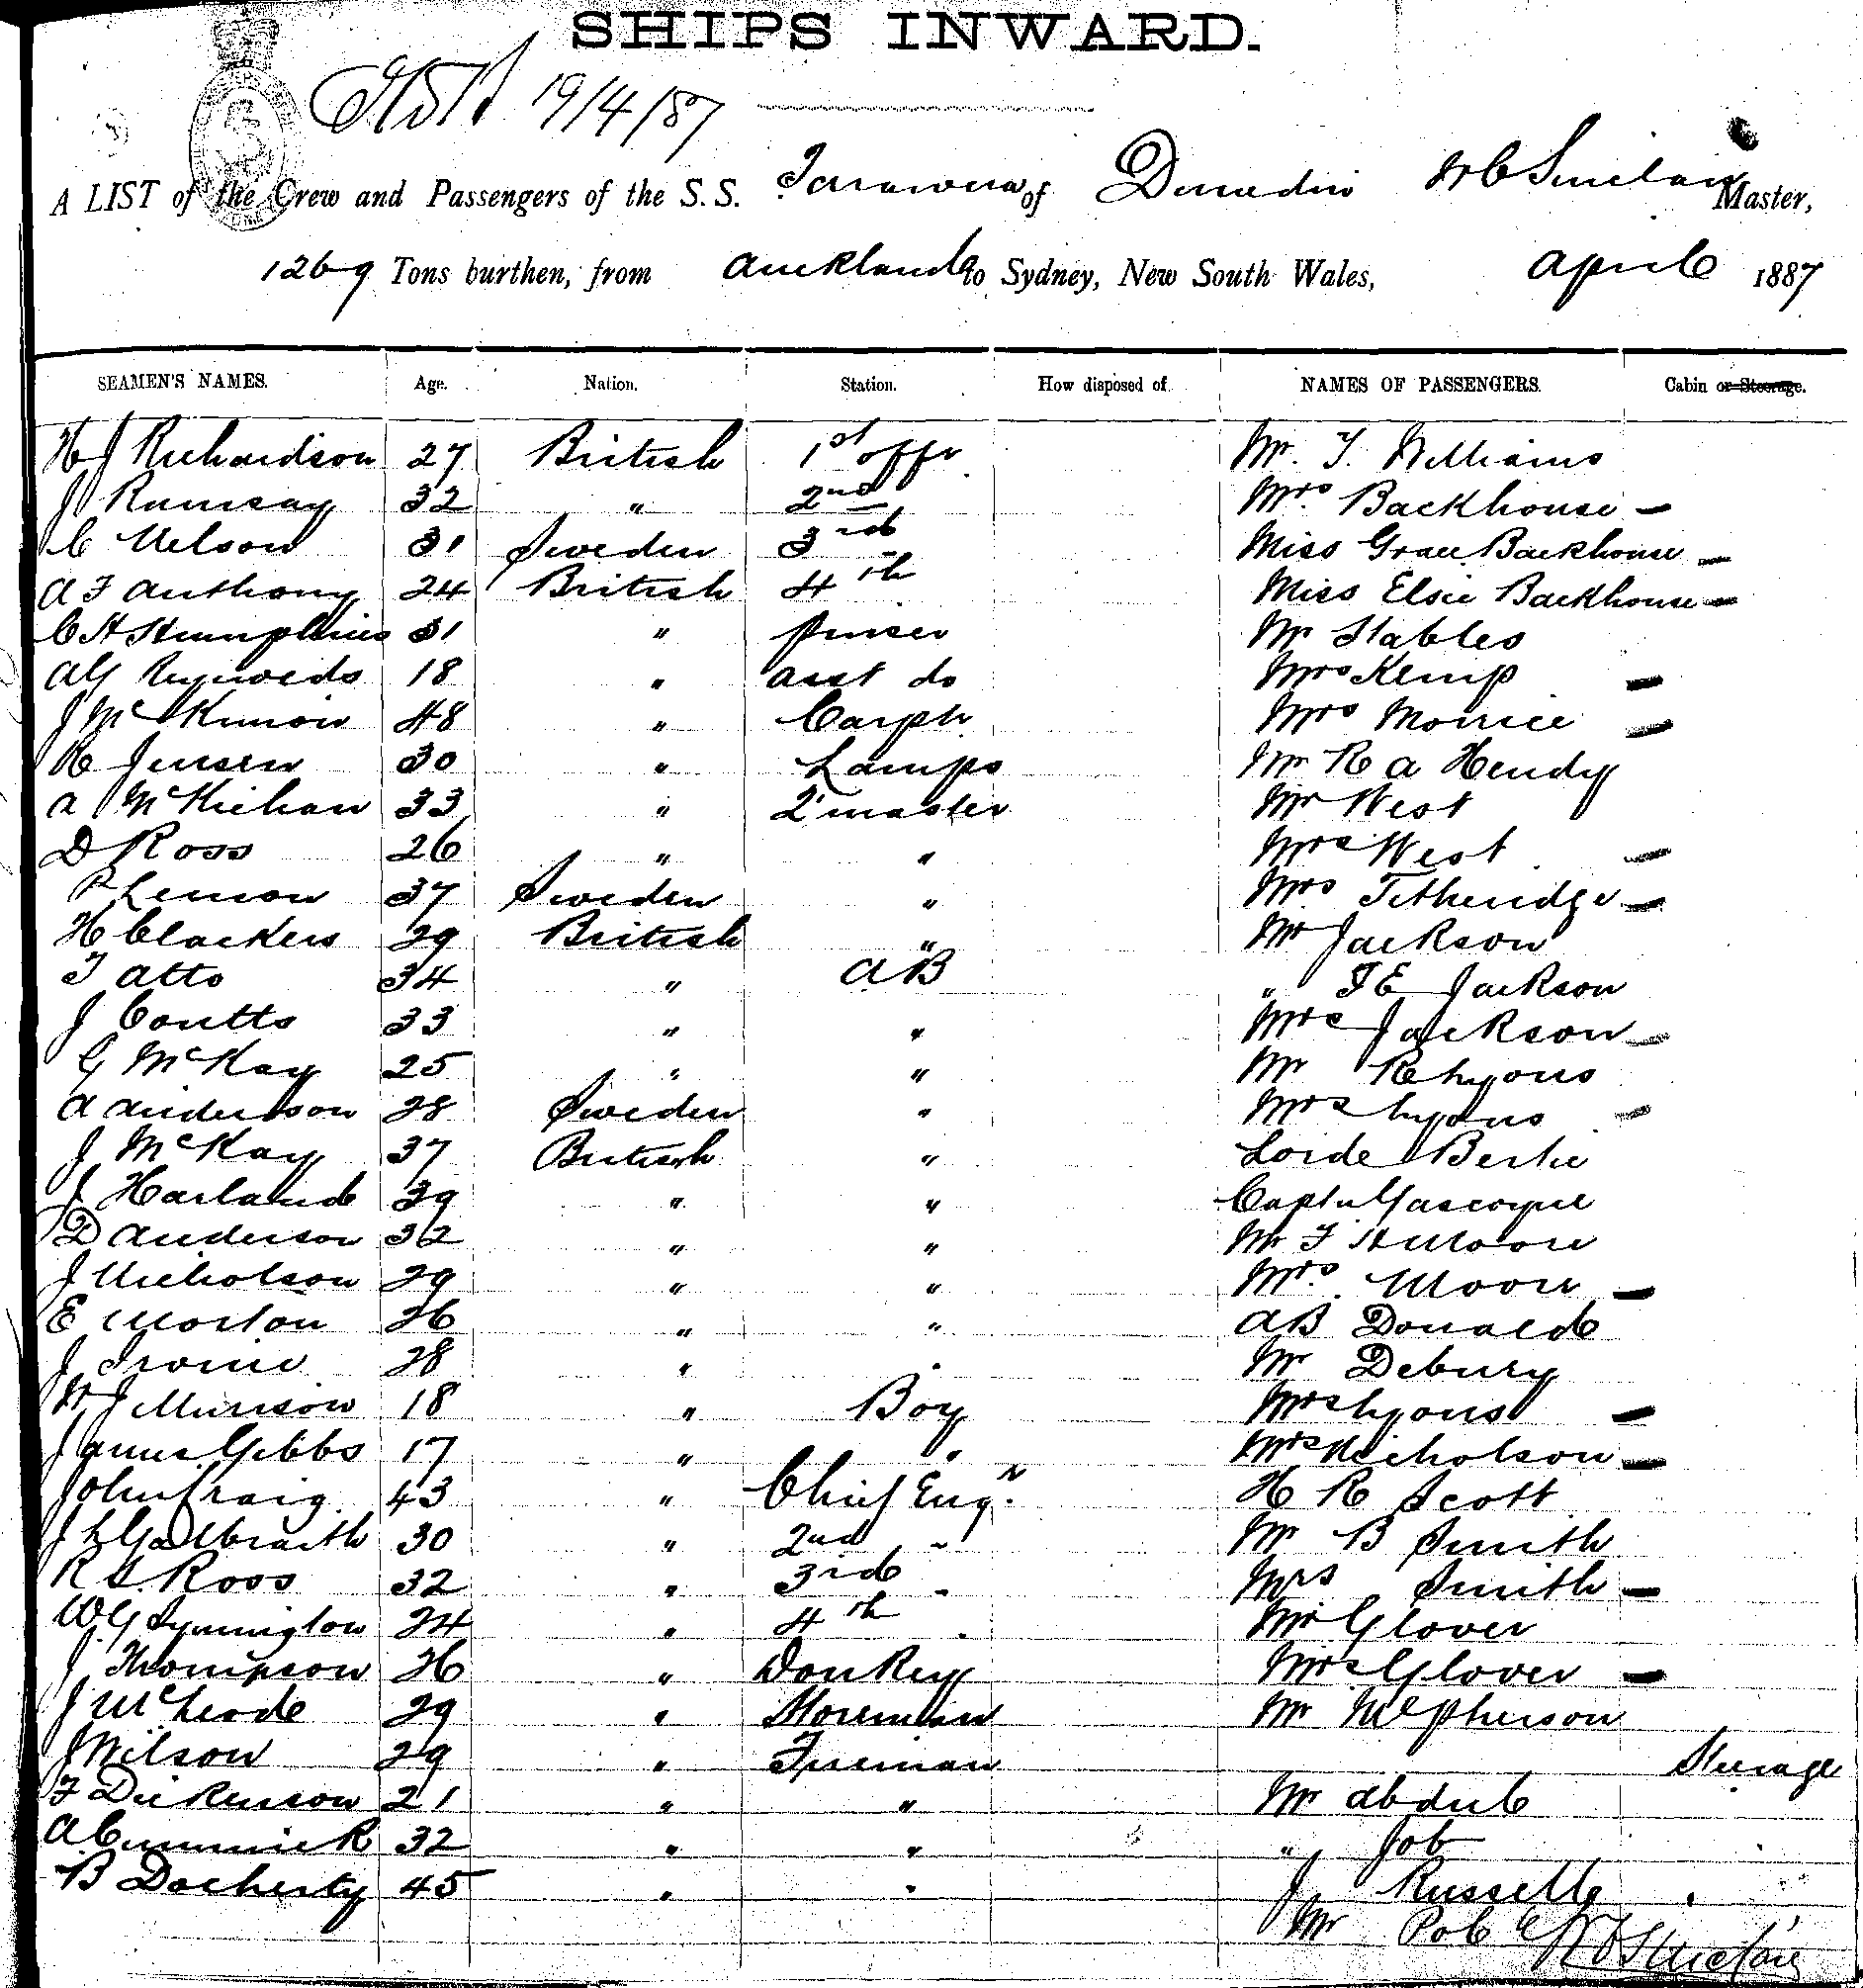 SHIPS INWARD.
19/4/87
A LIST of the Crew and Passengers of the S.S. Tarawera of Dunedin W C Sinclair Master,
1269 Tons burthen, from Auckland to Sydney, New South Wales, April 1887
SEAMEN'S NAMES. Age. Nation. Station. How disposed of NAMES OF PASSENGERS. Cabin or Steerage.
H J Richardson 27 British 1st offr Mr. T. Williams
J Ramsay 32 " 2nd Mrs. Backhouse —
C Nelson 31 Sweden 3rd Miss Grace Backhouse —
A F Anthony 24 British 4th Miss Elsie Backhouse —
C H Humphries 31 " Purser Mr Stables
A G 18 " asst do Mrs Kemp —
J McKinnon 48 " Carptr Mrs Morrice —
H Jensen 30 " Lamps Mr R A Hendy
A McKichan 33 " Q master Mr West
D Ross 26 " " Mrs West —
P Lemon 37 Sweden " Mrs Titheridge —
H Clackers 29 British " Mr Jackson
T Atto 34 " AB " T E Jackson
J Coutts 33 " " Mrs Jackson —
G McKay 25 " " Mr R Lyons
A Anderson 28 Sweden " Mrs Lyons —
J McKay 37 British " Lord Bertie
J Harland 39 " " Captn Gascoyne
D Anderson 32 " " Mr F H Moore
J Nicholson 29 " " Mrs. Moore —
E Morton 26 " " A B Donald
J Irvine 28 " " Mr Debury
W J Munson 18 " Boy Mrs Lyons —
James Gibbs 17 " " Mrs Nicholson —
John Craig 43 " Chief Engr. H R Scott
J L Galbraith 30 " 2nd " Mr B Smith
R S. Ross 32 " 3rd " Mrs Smith —
W G Symington 24 " 4th " Mr Glover
J Thompson 26 " Donkey Mrs Glover —
J McLeod 29 " Storeman Mr McPherson
J Wilson 29 " Fireman Steerage
F Dickenson 21 " " Mr Abdul
A Cummick 32 " " " Job
B Docherty 45 " " J Russell "
Mr Pole W C Sinclair